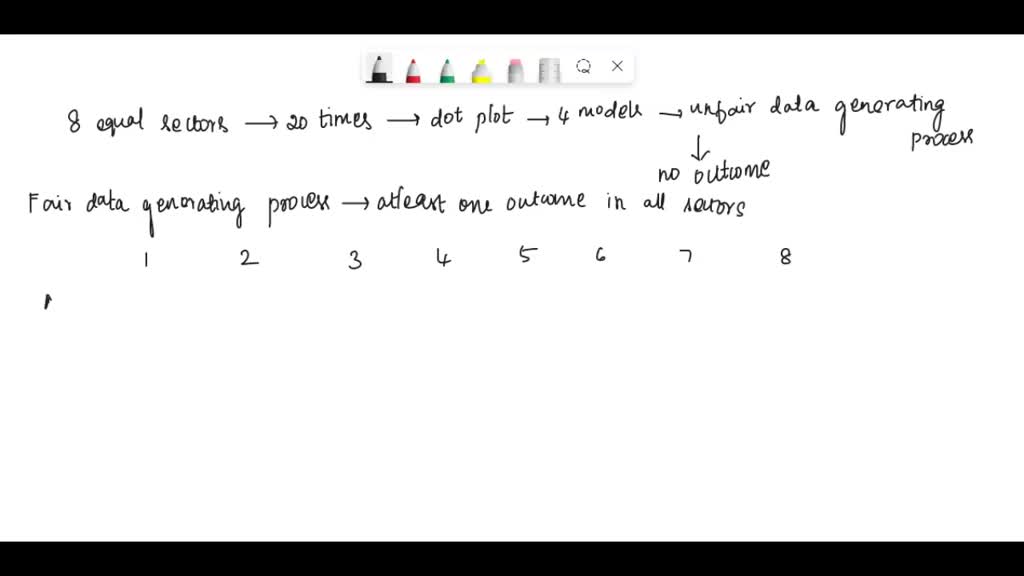 8 equal sectors → 20 times → dot plot → 4 models → unfair data generating process
↓
no outcome
Fair data generating process → atleast one outcome in all sectors
1 2 3 4 5 6 7 8